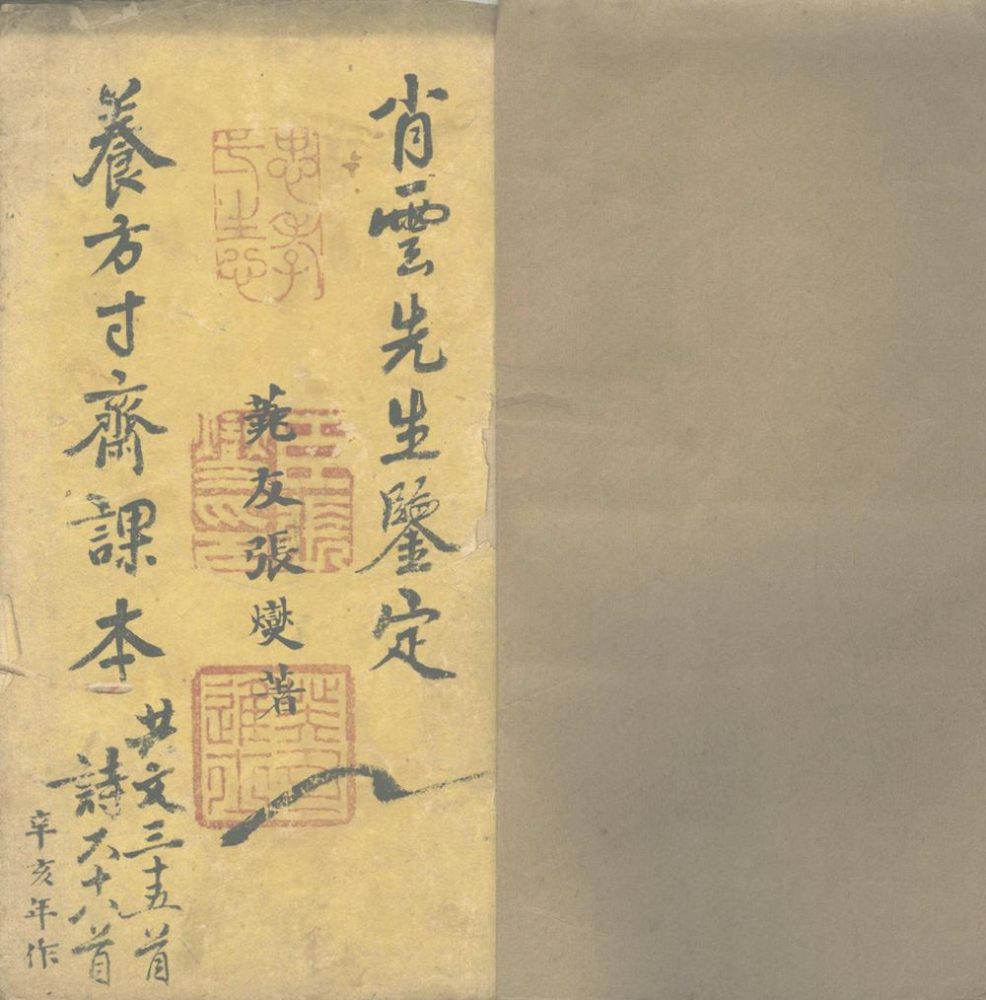 肖雲先生鑒定
友張爕著
養方寸齋課本
共文三十五首
詩六十八首
辛亥年作
忠孝